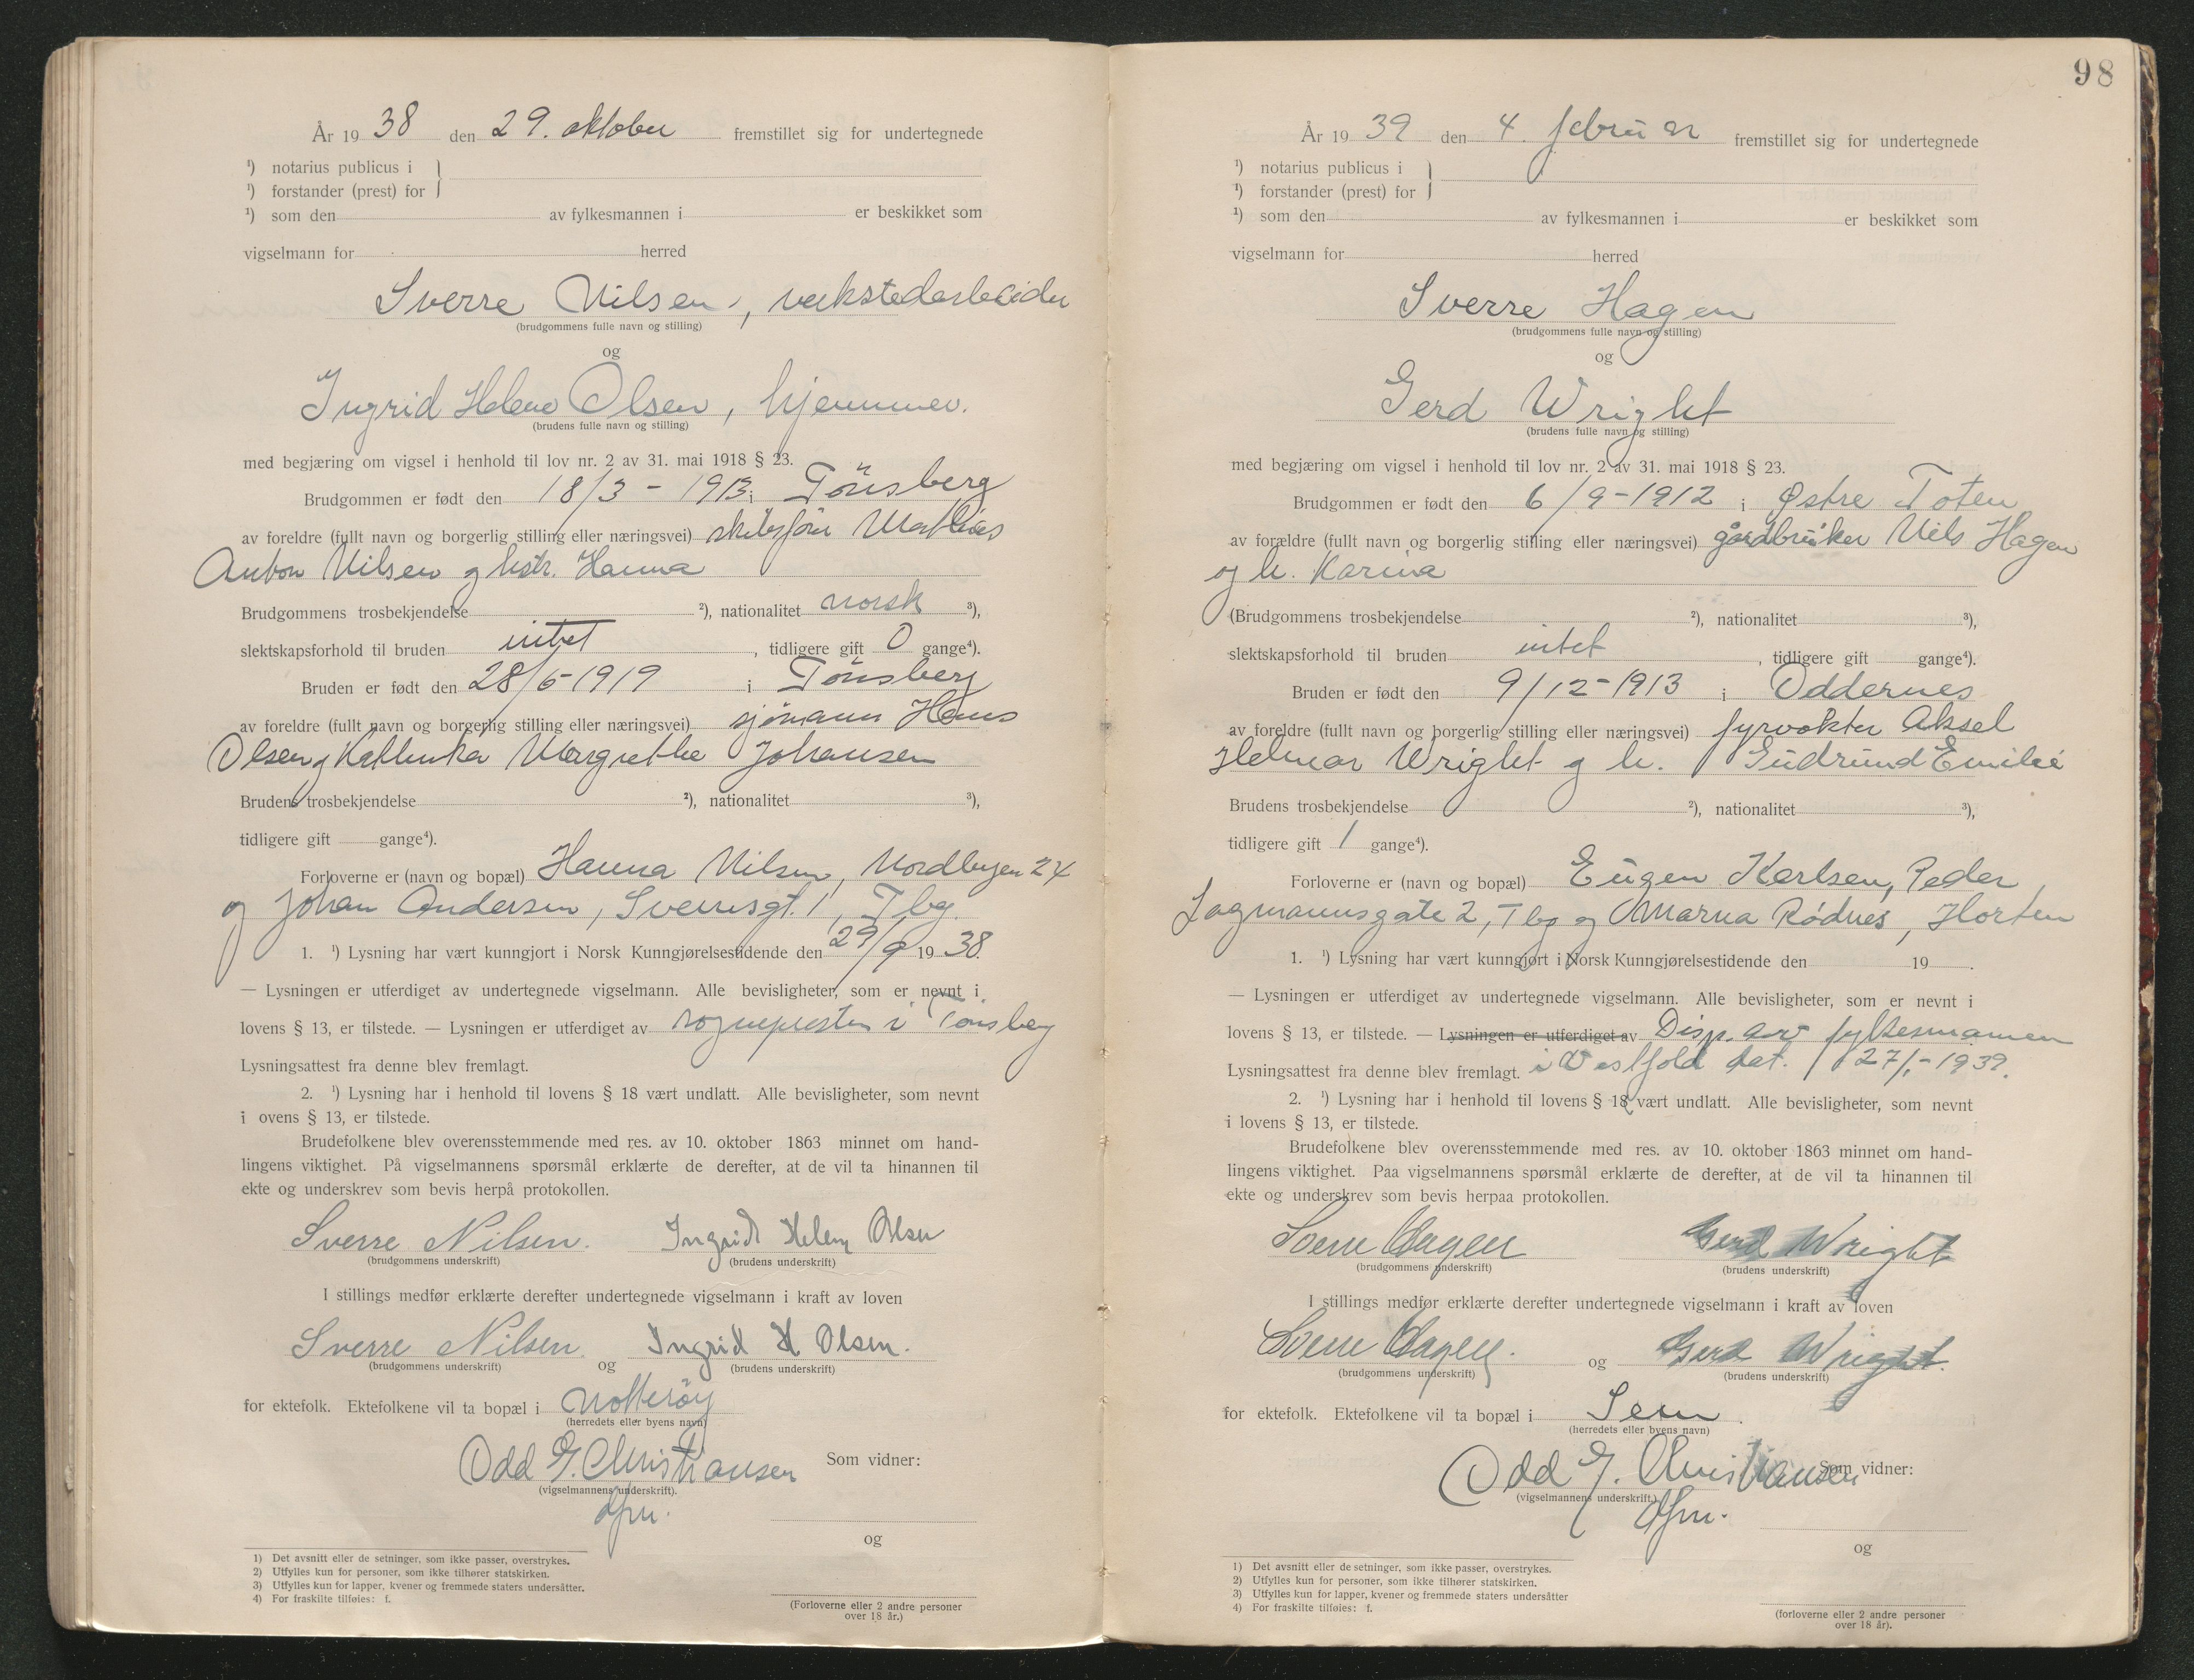 År 19 38 den 29. oktober fremstillet sig for undertegnede
¹) notarius publicus i
¹) forstander (prest) for
¹) som den av fylkesmannen i er beskikket som
vigselmann for herred
Sverre Nilsen, verkstedarbeider
(brudgommens fulle navn og stilling)
og
Ingrid Helene Olsen, hjemmev.
(brudens fulle navn og stilling)
med begjæring om vigsel i henhold til lov nr. 2 av 31. mai 1918 § 23.
Brudgommen er født den 18/3 - 1913 i Tönsberg
av foreldre (fullt navn og borgerlig stilling eller næringsvei) skibsförer Mathias
Anton Nilsen og hstr. Hanna
Brudgommens trosbekjendelse ²), nationalitet norsk ³),
slektskapsforhold til bruden intet, tidligere gift 0 gange⁴).
Bruden er født den 28/6-1919 i Tönsberg
av foreldre (fullt navn og borgerlig stilling eller næringsvei) sjömann Hans
Olsen og Kathinka Margrethe Johansen
Brudens trosbekjendelse ²), nationalitet ³),
tidligere gift gange⁴).
Forloverne er (navn og bopæl) Hanna Nilsen, Nordbyen 24
og Johan Andersen, Sverresgt. 1, Tbg.
1. ¹) Lysning har vært kunngjort i Norsk Kunngjørelsestidende den 29/9 19 38.
— Lysningen er utferdiget av undertegnede vigselmann. Alle bevisligheter, som er nevnt i
lovens § 13, er tilstede. — Lysningen er utferdiget av sognepresten i Tönsberg
Lysningsattest fra denne blev fremlagt.
2. ¹) Lysning har i henhold til lovens § 18 vært undlatt. Alle bevisligheter, som nevnt
i ovens § 13, er tilstede.
Brudefolkene blev overensstemmende med res. av 10. oktober 1863 minnet om hand-
lingens viktighet. På vigselmannens spørsmål erklærte de derefter, at de vil ta hinannen til
ekte og underskrev som bevis herpå protokollen.
Sverre Nilsen. Ingrid Helene Olsen
(brudgommens underskrift) (brudens underskrift)
I stillings medfør erklærte derefter undertegnede vigselmann i kraft av loven
Sverre Nilsen. og Ingrid H Olsen.
(brudgommens underskrift) (brudens underskrift)
for ektefolk. Ektefolkene vil ta bopæl i Nötteröy
(herredets eller byens navn)
Odd G. Christiansen Som vidner:
(vigselmannens underskrift).
dfm.
og
1) Det avsnitt eller de setninger, som ikke passer, overstrykes.
2) Utfylles kun for personer, som ikke tilhører statskirken.
3) Utfylles kun for lapper, kvener og fremmede staters undersåtter.
4) For fraskilte tilføies: f.
(Forloverne eller 2 andre personer
over 18 år.)
98
År 19 39 den 4. februar fremstillet sig for undertegnede
¹) notarius publicus i
¹) forstander (prest) for
¹) som den av fylkesmannen i er beskikket som
vigselmann for herred
Sverre Hagen
(brudgommens fulle navn og stilling)
og
Gerd Wright
(brudens fulle navn og stilling)
med begjæring om vigsel i henhold til lov nr. 2 av 31. mai 1918 § 23.
Brudgommen er født den 6/9-1912 i Østre Toten
av forældre (fullt navn og borgerlig stilling eller næringsvei) gårdbruker Nils Hagen
og h. Karina
(Brudgommens trosbekjendelse ²), nationalitet ³),
slektskapsforhold til bruden intet, tidligere gift gange⁴).
Bruden er født den 9/12-1913 i Oddernes
av foreldre (fullt navn og borgerlig stilling eller næringsvei) fyrvokter Aksel
Helmar Wright og h. Gudrund Emilie
Brudens trosbekjendelse ²), nationalitet ³),
tidligere gift 1 gange⁴).
Forloverne er (navn og bopæl) Eugen Karlsen, Peder
Lagmannsgate 2, Tbg og Marna Rödnes, Horten
1. ¹) Lysning har vært kunngjort i Norsk Kunngjørelsestidende den 19 .
— Lysningen er utferdiget av undertegnede vigselmann. Alle bevisligheter, som er nevnt i
lovens § 13, er tilstede. — Lysningen er utferdiget av Disp. av fylkesmannen
Lysningsattest fra denne blev fremlagt. i Vestfold dat. 27/1-1939.
2. ¹) Lysning har i henhold til lovens § 18 vært undlatt. Alle bevisligheter, som nevnt
i lovens § 13, er tilstede.
Brudefolkene blev overensstemmende med res. av 10. oktober 1863 minnet om hand-
lingens viktighet. Paa vigselmannens spørsmål erklærte de derefter, at de vil ta hinannen til
ekte og underskrev som bevis herpaa protokollen.
Sverre Hagen Gerd Wright
(brudgommens underskrift) (brudens underskrift)
I stillings medfør erklærte derefter undertegnede vigselmann i kraft av loven
Sverre Hagen. og Gerd Wright.
(brudgommens underskrift) (brudens underskrift)
for ektefolk. Ektefolkene vil ta bopæl i Sem.
(herredets eller byens navn)
Odd G. Christiansen Som vidner:
(vigselmannens underskrift.)
dfm.
og
1) Det avsnitt eller de setninger, som ikke passer, overstrykes.
2) Utfylles kun for personer, som ikke tilhører statskirken.
3) Utfylles kun for lapper, kvener og fremmede staters undersåtter
4) For fraskilte tilføies: f.
(forloverne eller 2 andre personer
over 18 år).